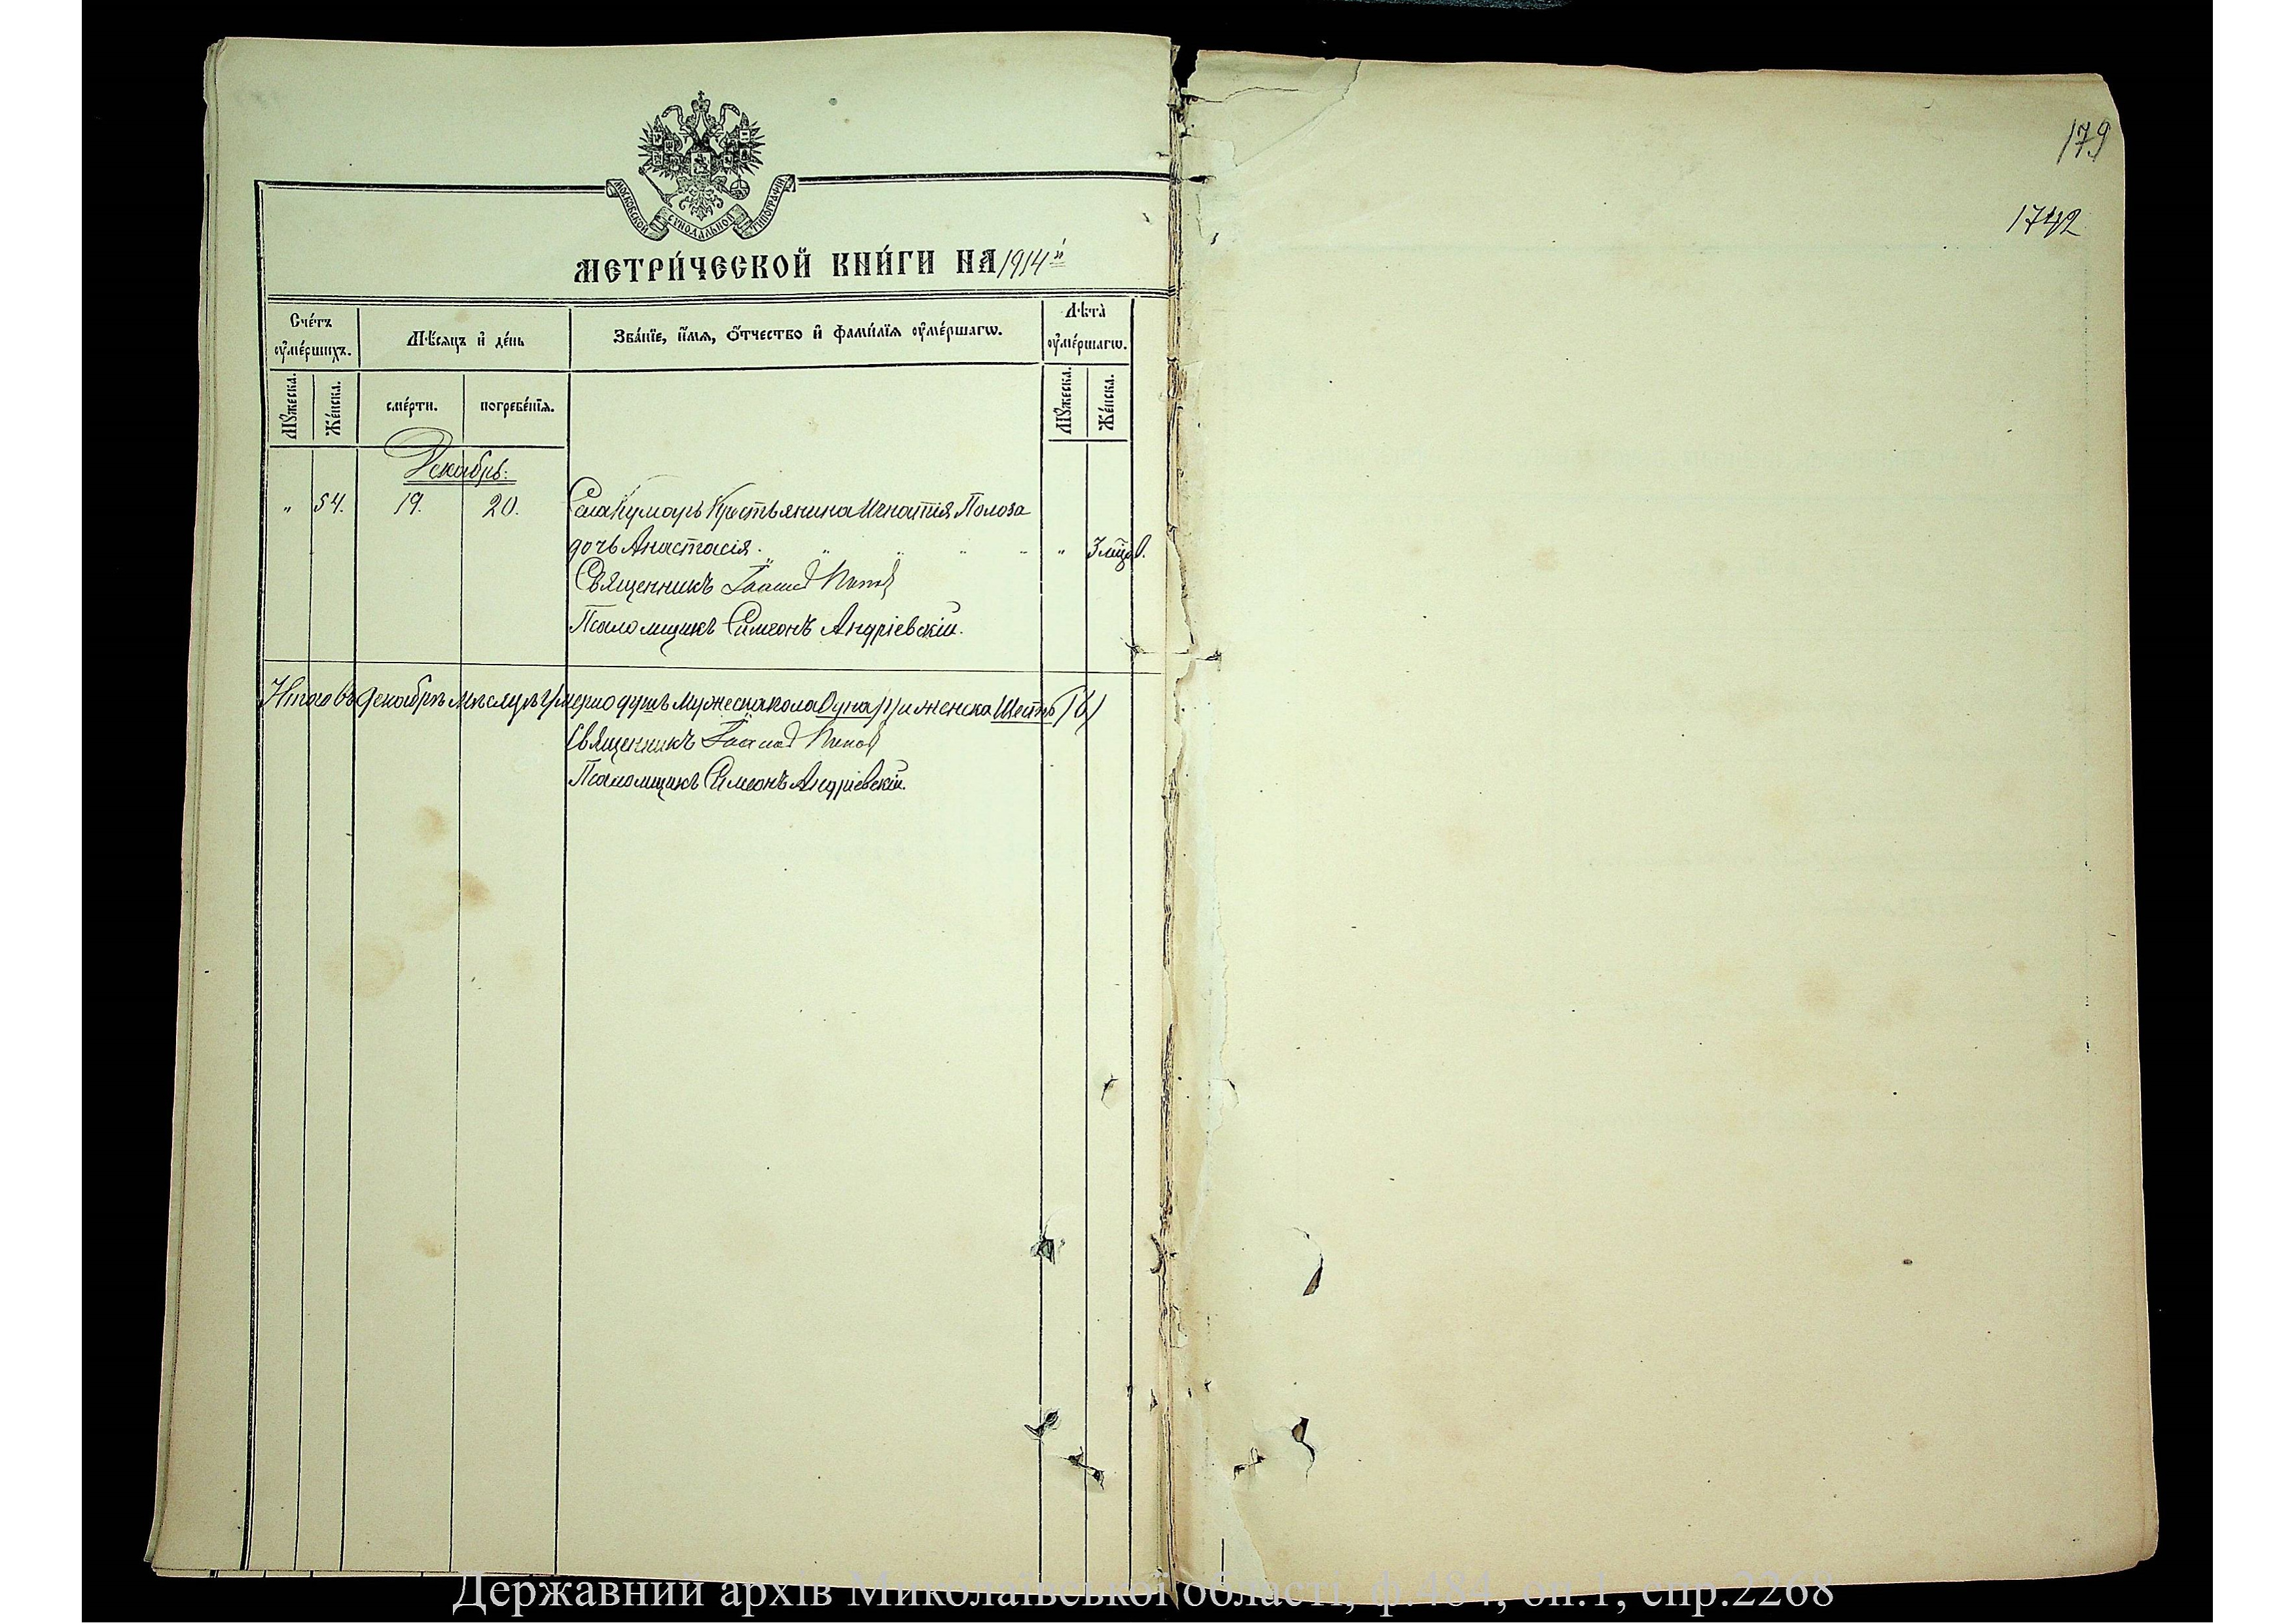 МОСКОВСКОЙ СѴНОДАЛЬНОЙ ТИПОГРАФІИ
МЕТРИ́ЧЕСКОЙ КНИ́ГИ НА 1914 й
Сче́тъ ᲂумершихъ.
Мѣсяцъ и де́нь
Зва́нїе, и́мя, ѻ́тчество и фами́лїя ᲂуме́ршагѡ.
Лѣта̀ ᲂуме́ршагѡ.
Мꙋжеска.
Же́нска.
сме́рти.
погребе́нїя.
Мꙋжеска.
Же́нска.
Декабрь.
" 54. 19. 20. Села Кумаръ Крестьянина Игнатія Полоза
дочь Анастасія. " " " " " " 3 мѣс.
Священникъ Іоаннъ
Псаломщикъ Симеонъ Андріевскій.
Итого въ Декабрѣ мѣсяцѣ Умерло душъ Мужеска пола Одна (1) и женска Шесть (6)
Священникъ Іоаннъ
Псаломщикъ Симеонъ Андріевскій.
179
1742
Державний архів Миколаївської області, ф.484, оп.1, спр.2268